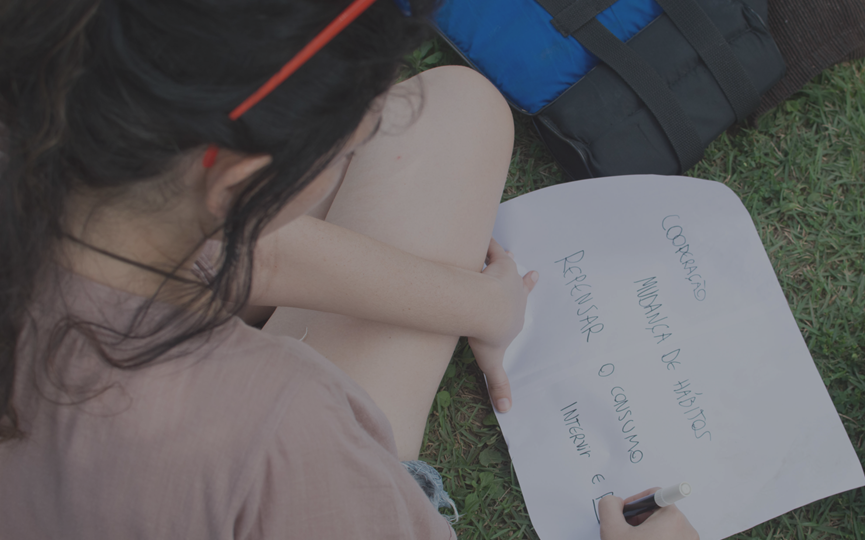 COOPERAÇÃO
MUDANÇA DE HÁBITOS
REPENSAR O CONSUMO
INTERVIR E